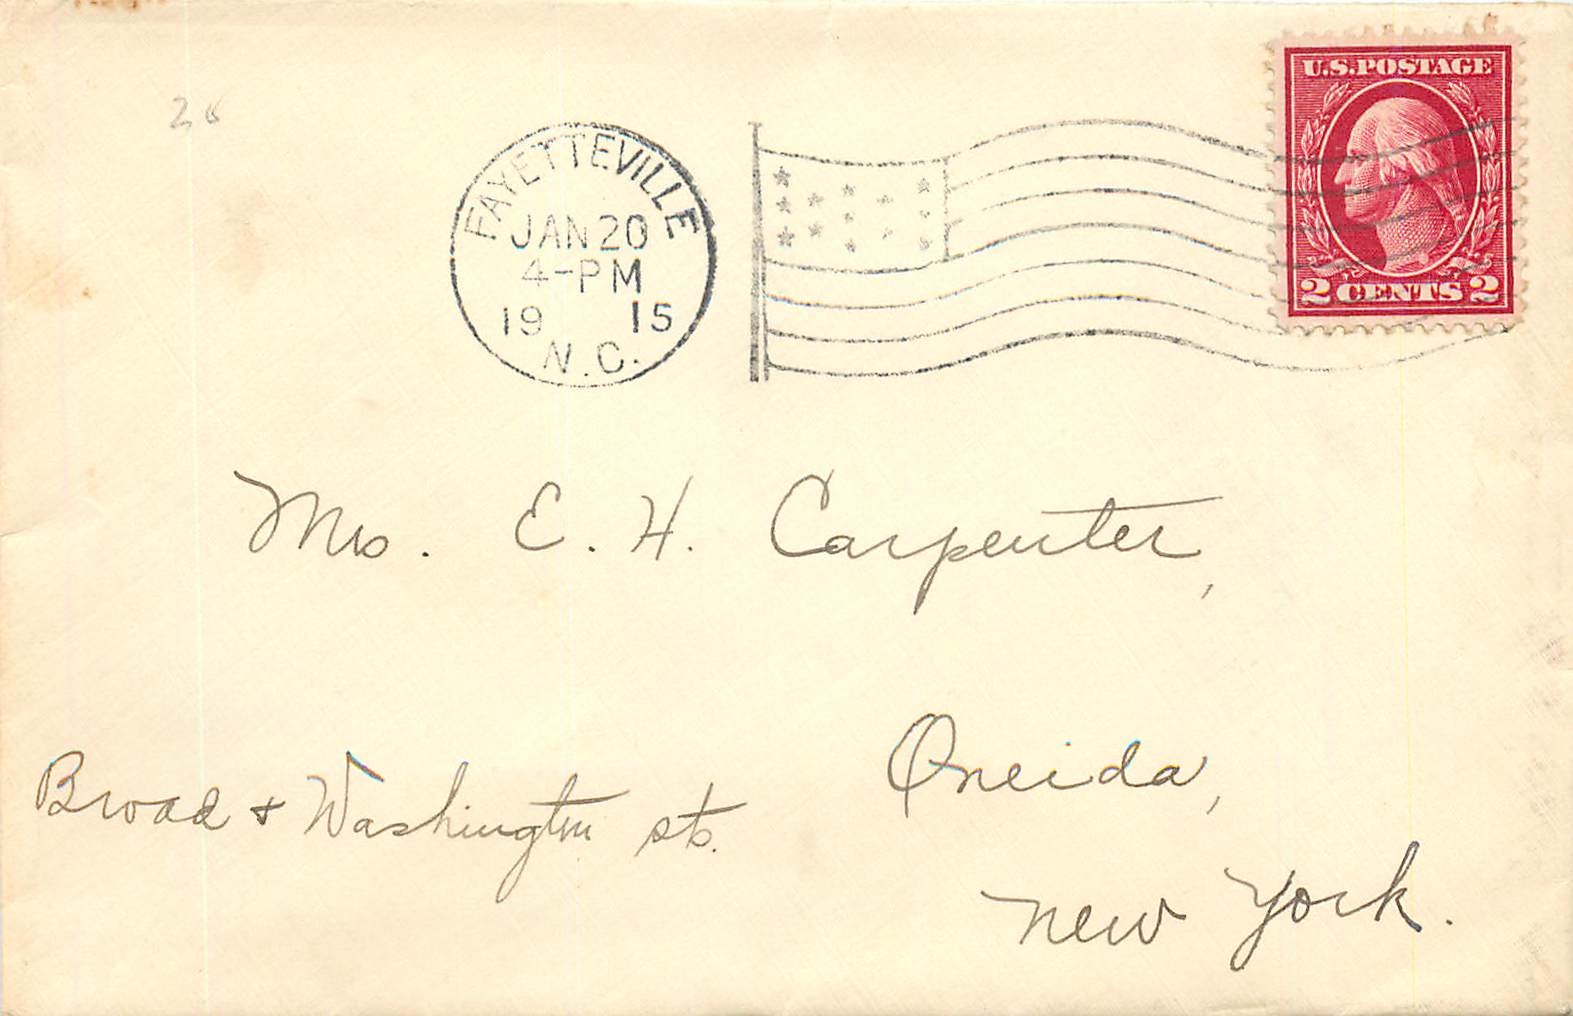 20
U.S. POSTAGE
2 CENTS 2
FAYETTEVILLE
JAN 20
4-PM
19 15
N.C.
Mrs. E. H. Carpenter,
Oneida,
Broad + Washington sts.
New York.